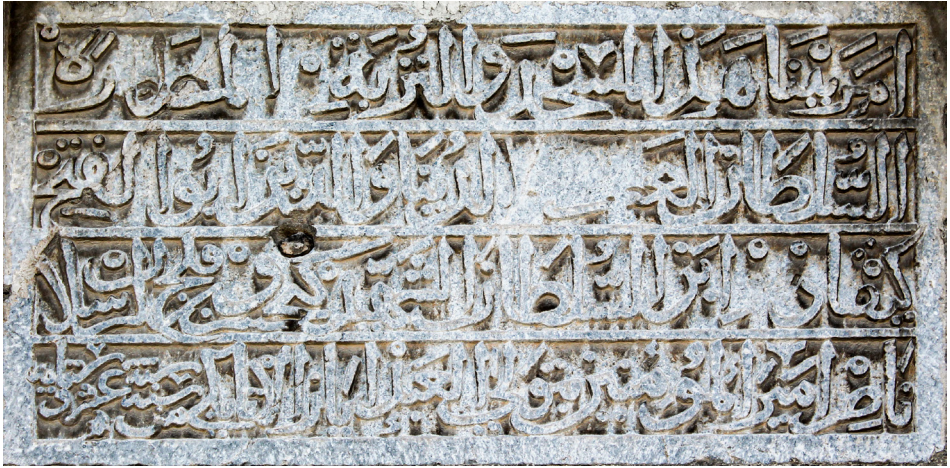 امر ببنا هذا المسجد والتربة المطهرة
السلطان الغالب الدنيا والدين ابو الفتح
كيكاوس ابن السلطان الشهيد كيخسرو بن قلج ارسلان
ناصر امير المؤمنين بتولى العبد اياز الاتابكي سنة ست عشر